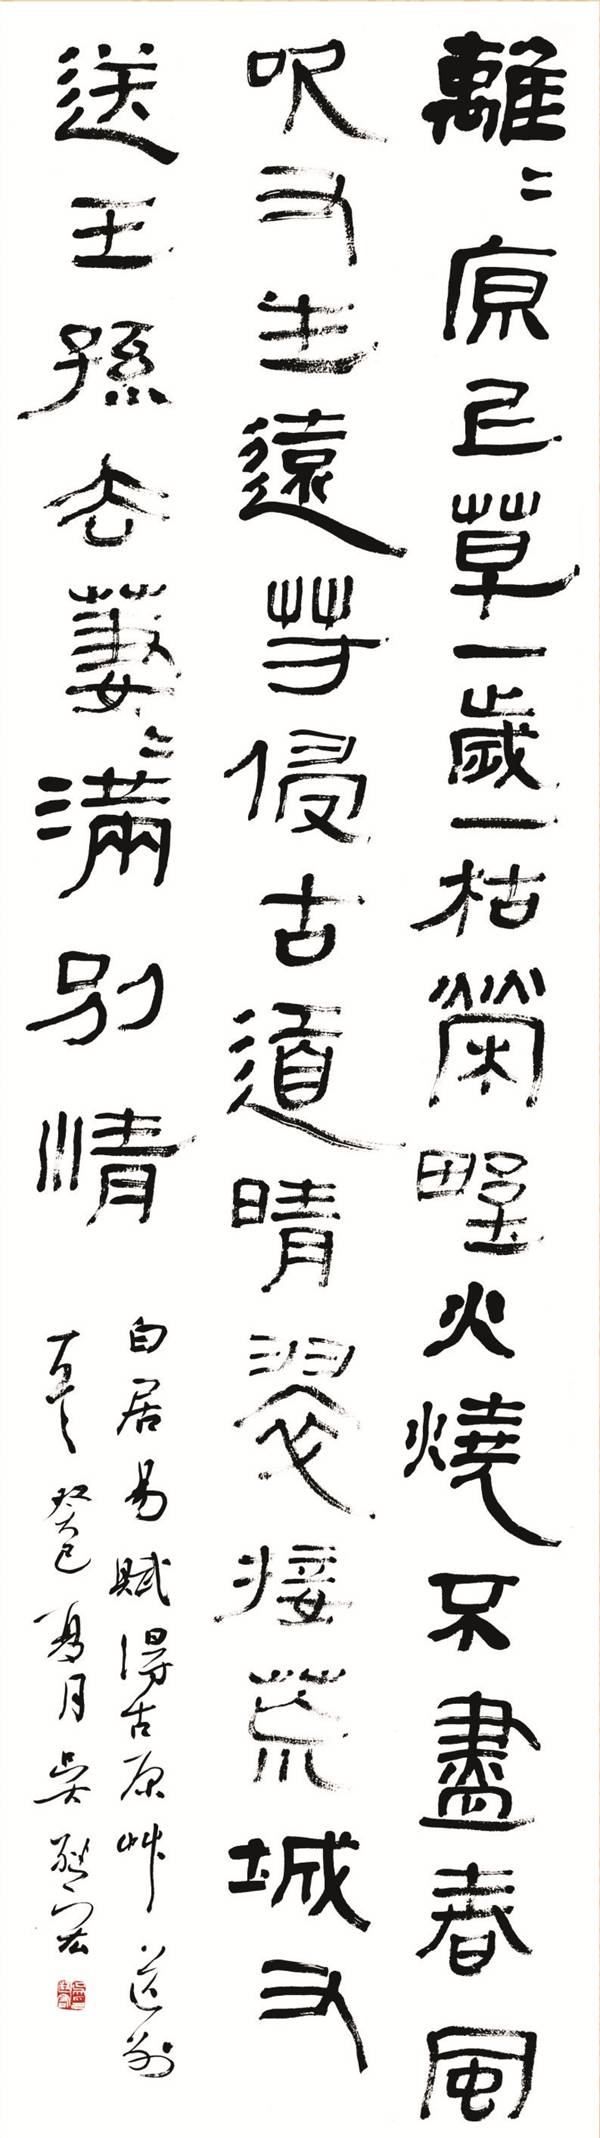 離〻原上草一歲一枯榮野火燒不盡春風
吹又生遠芳侵古道晴翠接荒城又
送王孫去萋〻滿別情
白居易賦得古原艸送別
癸巳夏月吳